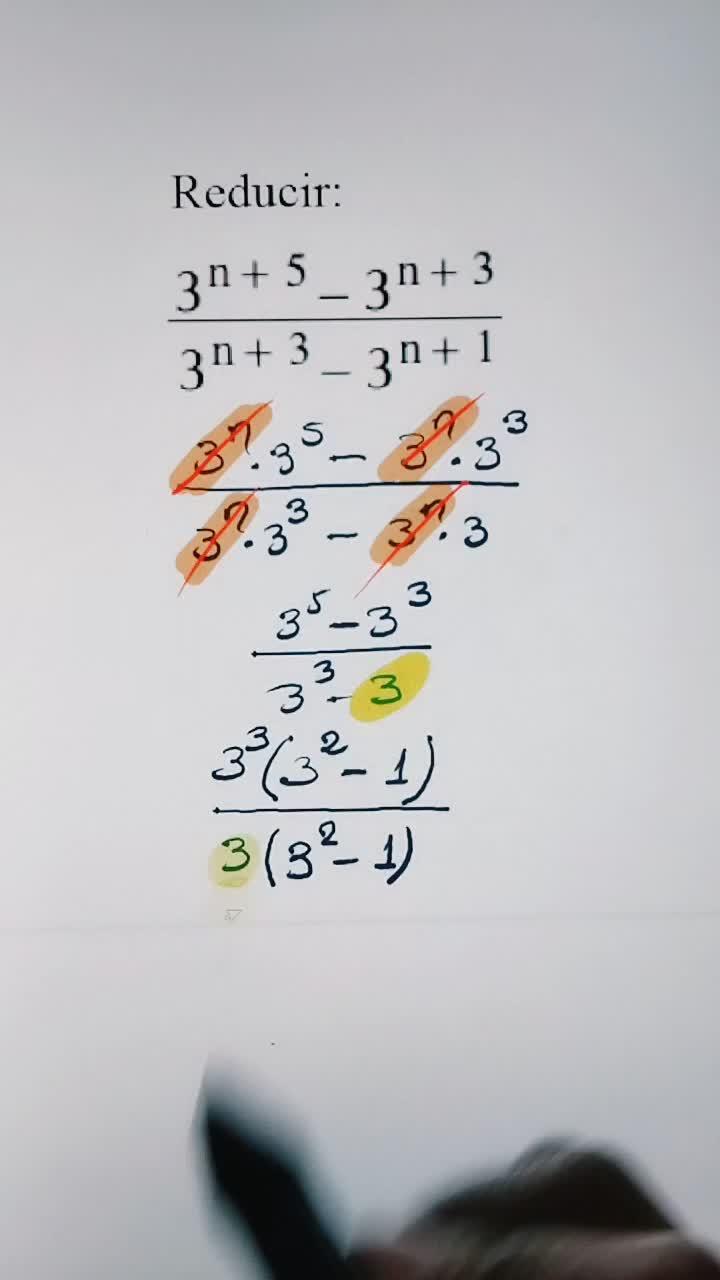 Reducir:
3^{n + 5} – 3^{n + 3}
3^{n + 3} – 3^{n + 1}
3^n · 3^5 – 3^n · 3^3
3^n · 3^3 – 3^n · 3
3^5 – 3^3
3^3 - 3
3^3 (3^2 – 1)
3 (3^2 – 1)